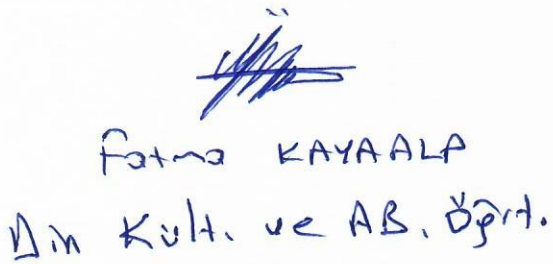 Fatma KAYAALP
Din Kült. ve AB. Öğrt.